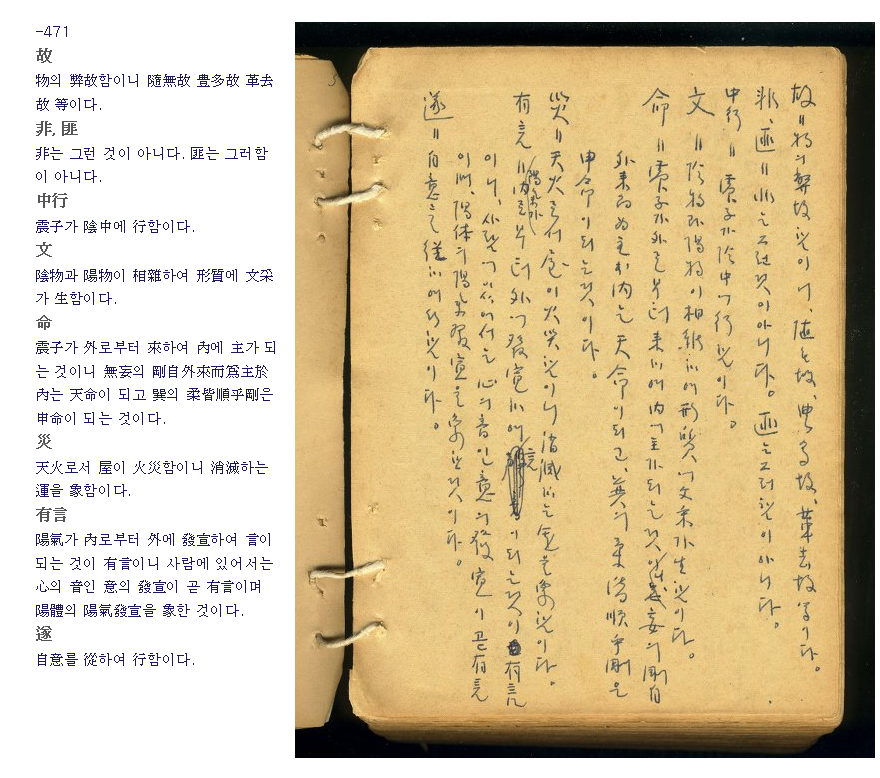 -471
故
物의 弊故함이니 隨無故 豊多故 革去
故 等이다.
非, 匪
非는 그런 것이 아니다. 匪는 그러함
이 아니다.
中行
震子가 陰中에 行함이다.
文
陰物과 陽物이 相雜하여 形質에 文采
가 生함이다.
命
震子가 外로부터 來하여 內에 主가 되
는 것이니 無妄의 剛自外來而爲主於
內는 天命이 되고 巽의 柔皆順乎剛은
申命이 되는 것이다.
災
天火로서 屋이 火災함이니 消滅하는
運을 象함이다.
有言
陽氣가 內로부터 外에 發宣하여 言이
되는 것이 有言이니 사람에 있어서는
心의 音인 意의 發宣이 곧 有言이며
陽體의 陽氣發宣을 象한 것이다.
遂
自意를 從하여 行함이다.
故〃物의 弊故함이니, 隨无故, 豊多故, 革去故 等이다。
非, 匪〃非는 그런 것이 아니다。匪는 그러함이 아니다。
中行〃震子가 陰中에 行함이다。
文〃陰物과 陽物이 相雜하여 形質에 文采가 生함이다。
命〃震子가 外로부터 來하여 內에 主가 되는 것이니 无妄의 剛自
外來而為主於內는 天命이 되고, 巽의 柔皆順乎剛은
申命이 되는 것이다。
災〃天火로서 屋이 火災함이니 消滅하는 運을 象함이다。
有言〃陽氣가 內로부터 外에 發宣하여 言이 되는 것이 有言
이니, 사람에 있어서는 心의 音인 意의 發宣이 곧 有言
이며, 陽体의 陽氣發宣을 象한 것이다。
遂〃自意를 從하여 行함이다。